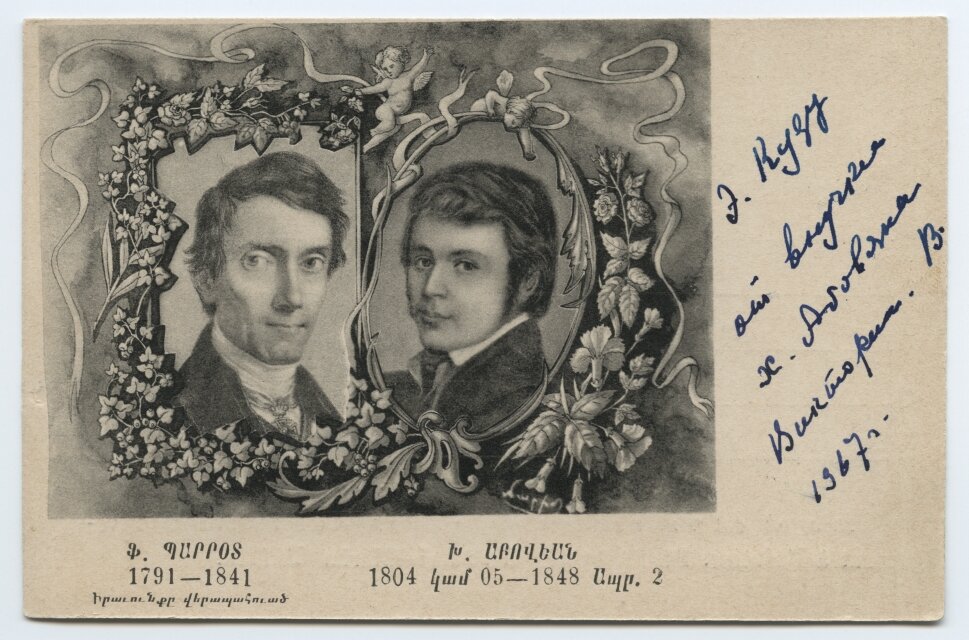 Э. Кудy
от внучки
х. Абовяна
Виктории. В.
1967г.
Ֆ. ՊԱՐՐՕՏ
1791—1841
Իրաւունքը վերապահուած
Խ. ԱԲՈՎԵԱՆ
1804 կամ 05—1848 Ապր. 2